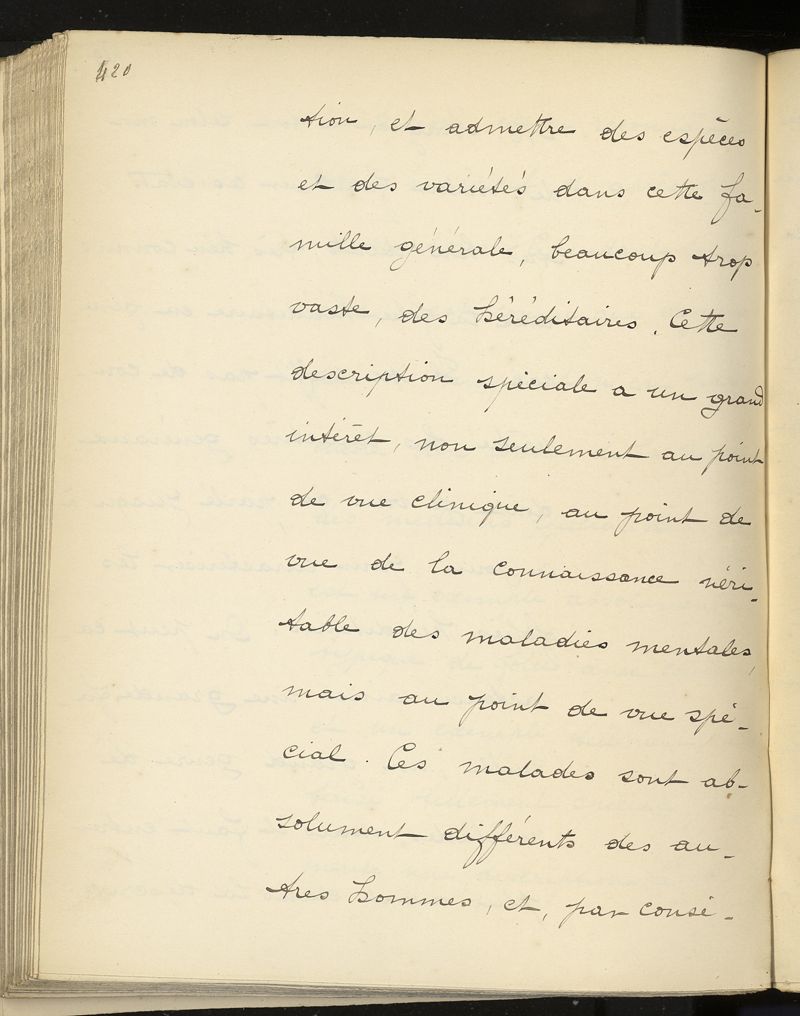 420
tion, et admettre des espèces
et des variétés dans cette fa-
mille générale, beaucoup trop
vaste, des héréditaires. Cette
description spéciale a un grand
intérêt, non seulement au point
de vue clinique, au point de
vue de la connaissance véri-
table des maladies mentales,
mais au point de vue spé-
cial. Ces malades sont ab-
solument différents des au-
tres hommes, et, par consé-